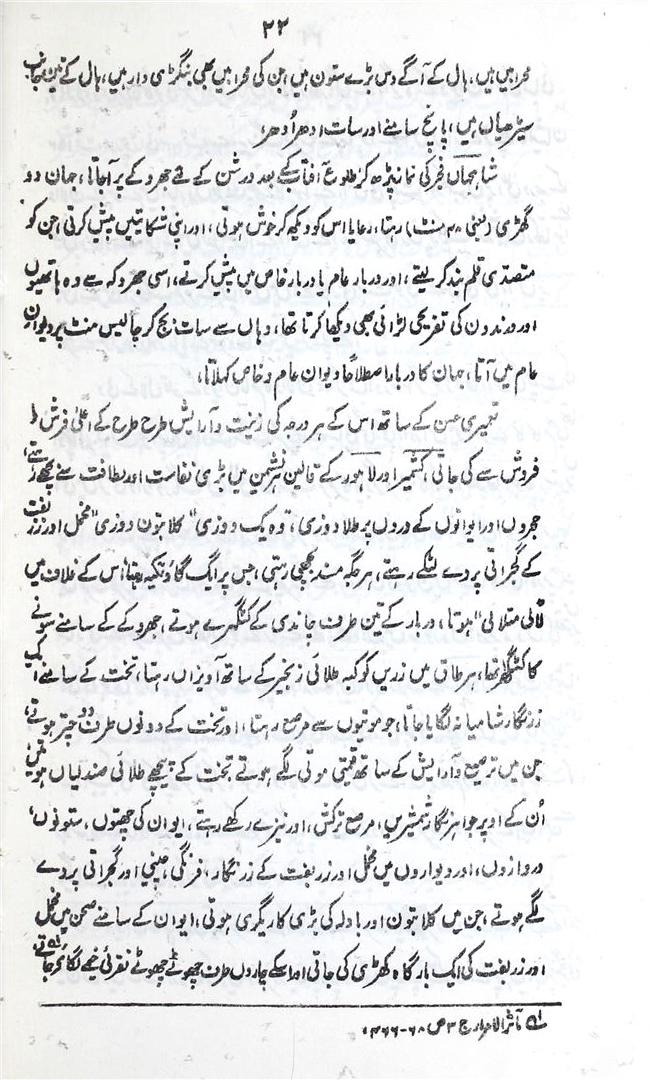 ۲۲
محرابیں ہیں، ہال کے آگے دس بڑے ستون ہیں، جن کی محرابیں بھی بنگڑی دار ہیں، ہال کے تین جانب
سیڑھیاں ہیں، پانچ سامنے اور سات ادھر اُدھر،
شاہجہاں فجر کی نماز پڑھ کر طلوع آفتاب کے بعد درشن کے لئے جھروکے پر آجاتا، جہان دو
گھڑی (یعنی ۴۸ منٹ) رہتا، رعایا اس کو دیکھ کر خوش ہوتی، اور اپنی شکایتیں پیش کرتی، جن کو
متصدی قلم بند کر لیتے، اور دربار عام یا دربار خاص میں پیش کرتے، اسی جھروکہ سے وہ ہاتھیوں
اور درندون کی تفریحی لڑائی بھی دیکھا کرتا تھا، وہاں سے سات بج کر چالیس منٹ پر دیوان
عام میں آتا، جہان کا دربار اصطلاحاً دیوان عام و خاص کہلاتا،
تعمیری حسن کے ساتھ اس کے ہر درجہ کی زینت و آرایش طرح طرح کے اعلیٰ فرش
فروش سے کی جاتی، کشمیر اور لاہور کے قالین ہر نشیمن میں بڑی نفاست اور لطافت سے بچھے رہتے،
حجروں اور ایوانوں کے دروں پر طلا دوزی، توہ یک دوزی" کلابتون دوزی" مخمل اور زربفت
کے گجراتی پردے لٹکے رہتے، ہر جگہ مسند بچھی رہتی، جس پر ایک گاؤ تکیہ رہتا، اس کے غلاف میں
ہوتا، دربار کے تین طرف چاندی کے کٹگھرے ہوتے، جھروکے کے سامنے سونے
کا کٹگھرا تھا، ہر طاق میں زریں کوکبہ طلائی زنجیر کے ساتھ آویزاں رہتا، تخت کے سامنے ایک
زرنگار شامیانہ لگایا جاتا، جو موتیوں سے مرصع رہتا، اور تخت کے دونوں طرف دو چتر ہوتے،
جن میں ترصیع و آرایش کے ساتھ قیمتی موتی لگے ہوتے، تخت کے پیچھے طلائی صندلیاں ہوتیں،
اُن کے اوپر جواہر نگار شمشیریں، مرصع ترکش، اور نیزے رکھے رہتے، ایوان کی چھتوں، ستونوں،
دروازوں، اور دیواروں میں مخمل اور زربفت کے زرنگار، فرنگی، چینی اور گجراتی پردے
لگے ہوتے، جن میں کلابتون اور بادلہ کی بڑی کاریگری ہوتی، ایوان کے سامنے صحن میں مخمل
اور زربفت کی ایک بارگاہ کھڑی کی جاتی اور اسکے چاروں طرف چھوٹے چھوٹے نقرئی خیمے لگائے جاتے
لہ مآثر الامرا ج ۳ ص